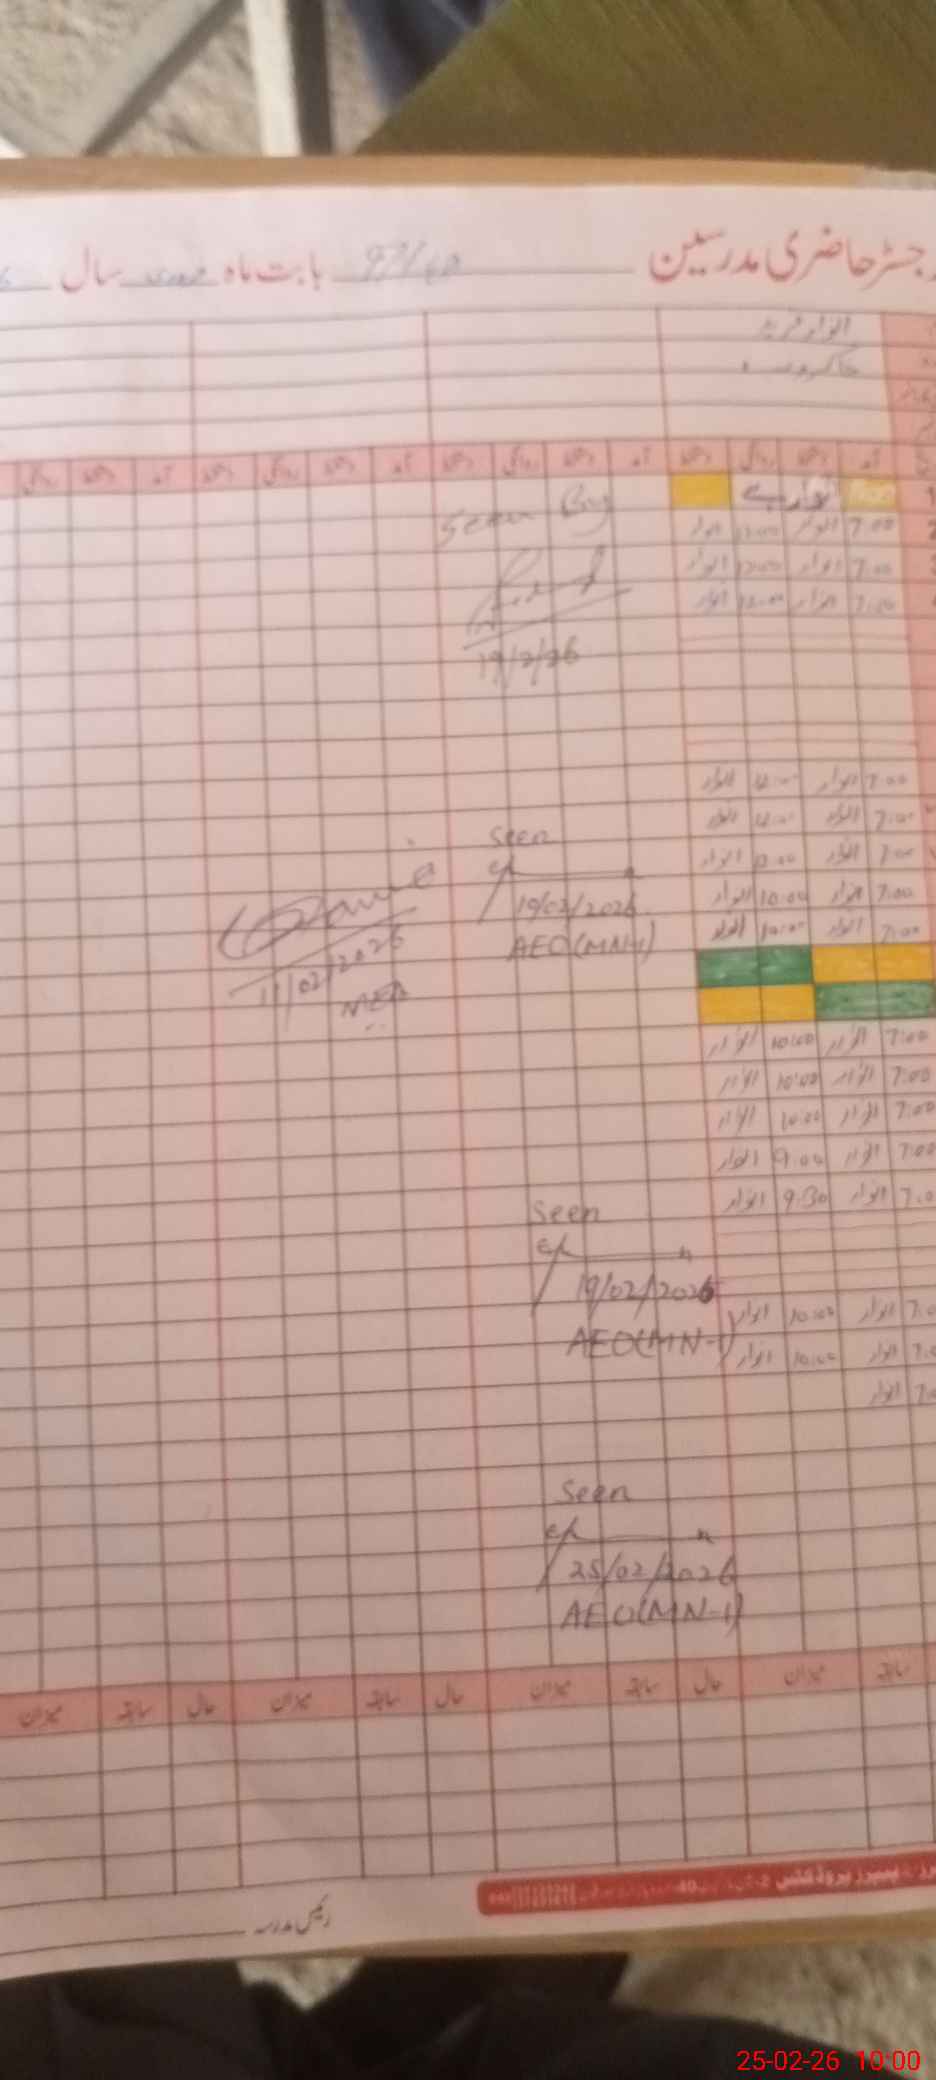 رجسٹر حاضری مدرسین بابت ماہ فروری سال
انوار فرید
خاکروب
آمد دستخط روانگی دستخط آمد دستخط روانگی دستخط آمد دستخط روانگی دستخط آمد دستخط روانگی
1 اتوار ہے
2 7:00 انوار 12:00 انوار
7:00 انوار 12:00 انوار
7:00 انوار 12:00 انوار
Seen By
19/2/26
7:00 انوار 12:00 انوار
7:00 انوار 12:00 انوار
7:00 انوار 12:00 انوار
7:00 انوار 10:00 انوار
7:00 انوار 10:00 انوار
Seen
19/02/2026
AEO(MN-1)
11/02/2026
MEA
7:00 انوار 10:00 انوار
7:00 انوار 10:00 انوار
7:00 انوار 10:00 انوار
7:00 انوار 9:00 انوار
7:0 انوار 9:30 انوار
Seen
19/02/2026
AEO(MN-1)
7:0 انوار 10:00 انوار
7:0 انوار 10:00 انوار
7:0 انوار
Seen
25/02/2026
AEO(MN-1)
سابقہ میزان حال سابقہ میزان حال سابقہ میزان حال سابقہ میزان
رئیس مدرسہ
25-02-26 10:00